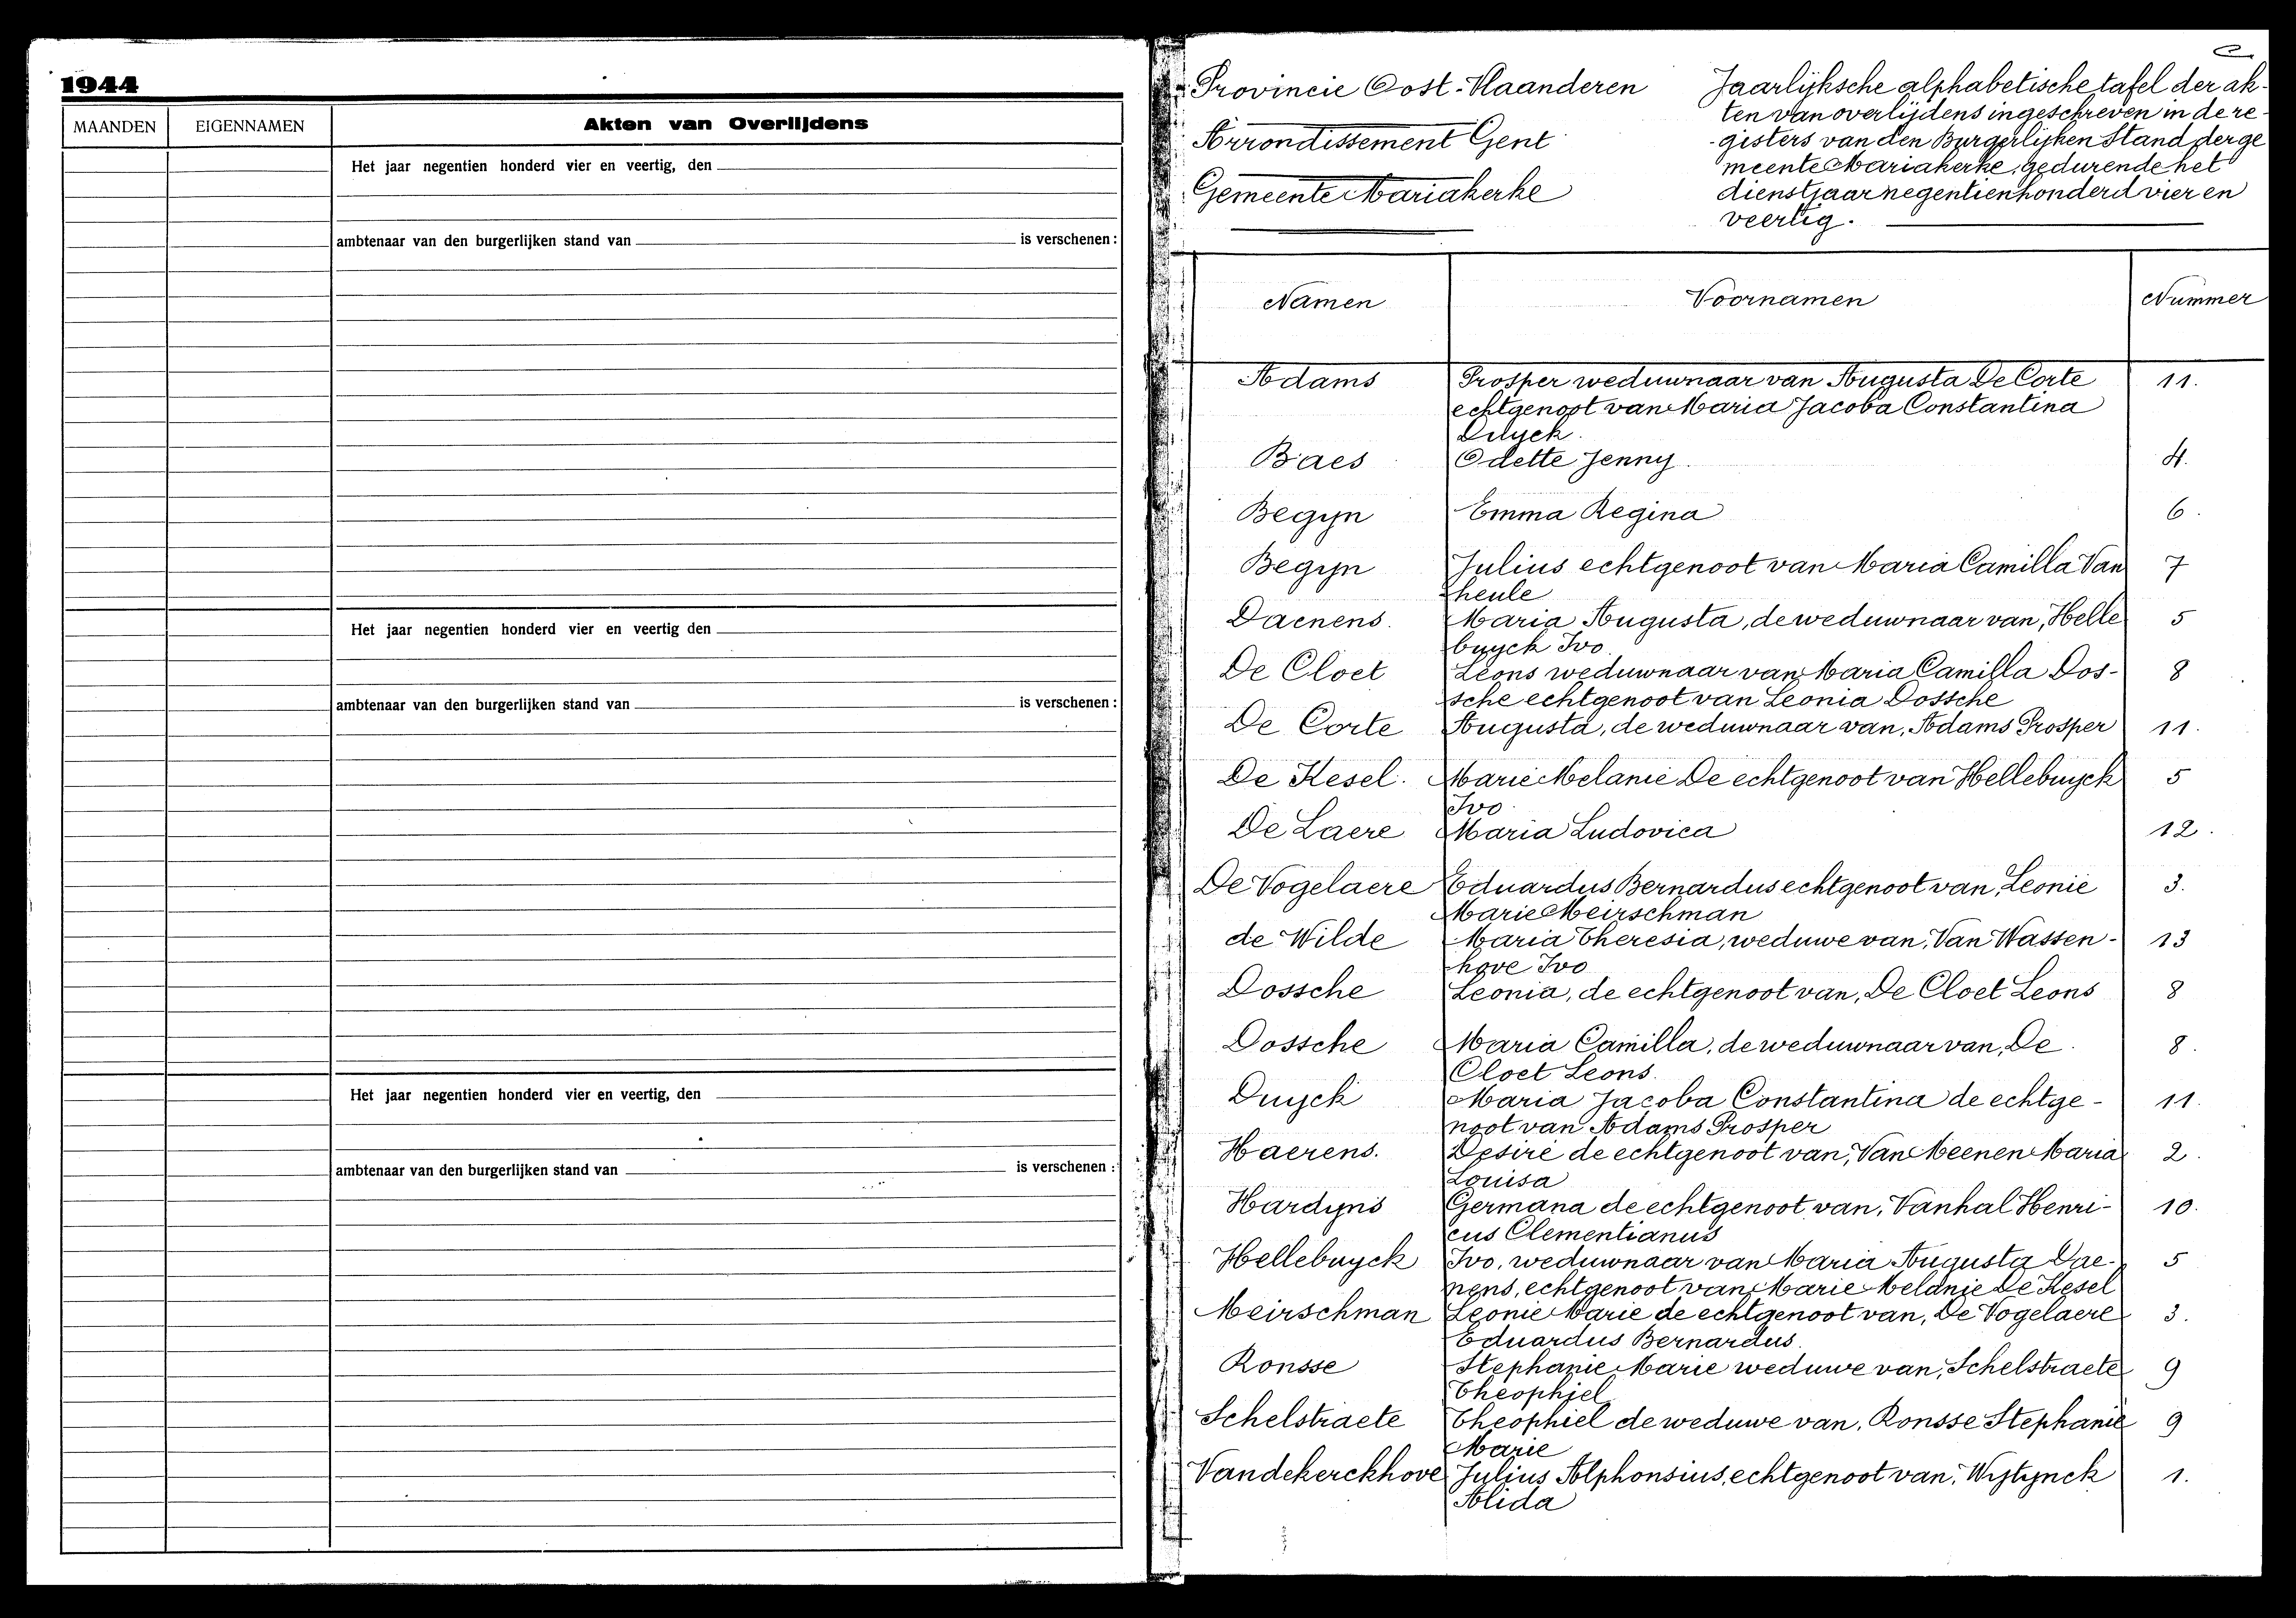 1944
MAANDEN EIGENNAMEN Akten van Overlijdens
Het jaar negentien honderd vier en veertig, den
ambtenaar van den burgerlijken stand van is verschenen :
Het jaar negentien honderd vier en veertig den
ambtenaar van den burgerlijken stand van is verschenen :
Het jaar negentien honderd vier en veertig, den
ambtenaar van den burgerlijken stand van is verschenen :
Provincie Oost-Vlaanderen
Arrondissement Gent
Gemeente Mariakerke
Jaarlijksche alphabetische tafel der ak-
ten van overlijdens ingeschreven in de re-
gisters van den Burgerlijken Stand der ge
meente Mariakerke, gedurende het
dienstjaar negentienhonderd vier en
veertig.
Namen Voornamen Nummer
Adams Prosper weduwnaar van Augusta De Corte 11.
echtgenoot van Maria Jacoba Constantina
Duyck.
Baes Odette Jenny. 4.
Begyn Emma Regina 6.
Begyn Julius echtgenoot van Maria Camilla Van 7
heule
Daenens. Maria Augusta, de weduwnaar van, Helle 5
buyck Ivo.
De Cloet Leons weduwnaar van Maria Camilla Dos- 8
sche echtgenoot van Leonia Dossche
De Corte Augusta, de weduwnaar van, Adams Prosper 11.
De Kesel. Marie Melanie De echtgenoot van Hellebuyck 5
Ivo.
De Laere Maria Ludovica 12.
De Vogelaere Eduardus Bernardus echtgenoot van, Leonie 3.
Marie Meirschman
de Wilde Maria Theresia, weduwe van, Van Wassen- 13
hove Ivo
Dossche Leonia, de echtgenoot van, De Cloet Leons 8
Dossche Maria Camilla, de weduwnaar van, De 8.
Cloet Leons.
Duyck Maria Jacoba Constantina de echtge- 11.
noot van Adams Prosper
Haerens. Desiré de echtgenoot van, Van Meenen Maria 2.
Louisa
Hardyns Germana de echtgenoot van, Vanhal Henri- 10.
cus Clementianus
Hellebuyck Ivo, weduwnaar van Maria Augusta Dae- 5
nens, echtgenoot van, Marie Melanie De Kesel
Meirschman Leonie Marie de echtgenoot van, De Vogelaere 3.
Eduardus Bernardus.
Ronsse Stephanie Marie weduwe van, Schelstraete 9
Theophiel
Schelstraete Theophiel de weduwe van, Ronsse Stephanie 9
Marie
Vandekerckhove Julius Alphonsius, echtgenoot van, Wytynck 1.
Alida